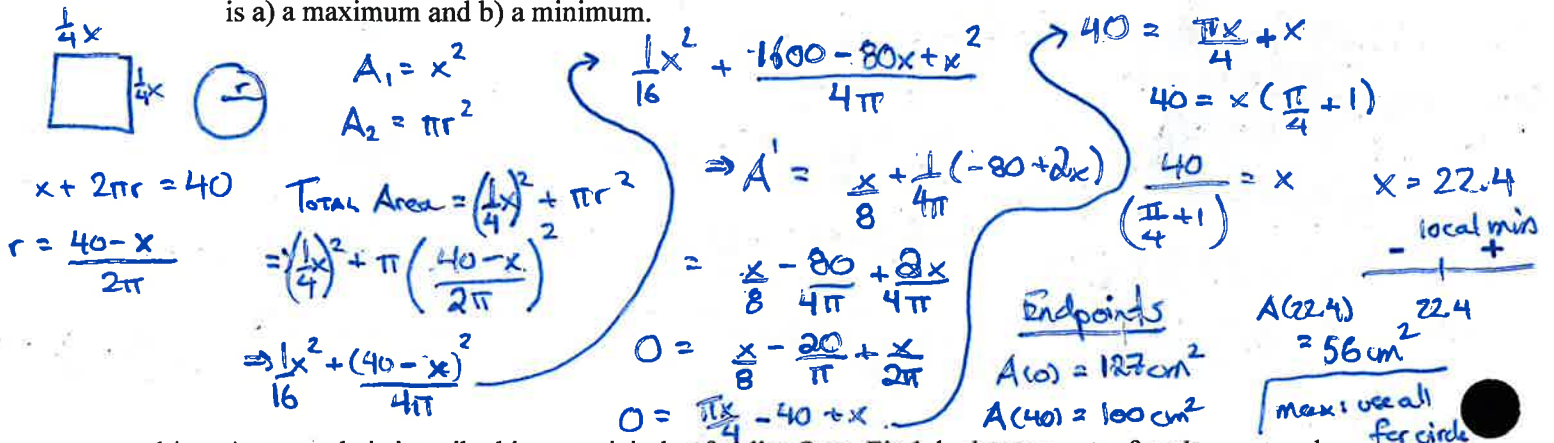 is a) a maximum and b) a minimum.
1/4 x
1/4 x
r
A₁ = x²
A₂ = πr²
x + 2πr = 40
r = (40-x)/(2π)
TOTAL Area = (1/4 x)² + πr²
= (1/4 x)² + π((40-x)/(2π))²
⇒ 1/16 x² + (40-x)²/(4π)
1/16 x² + (1600 - 80x + x²)/(4π)
⇒ A' = x/8 + 1/(4π) (-80 + 2x)
= x/8 - 80/(4π) + 2x/(4π)
0 = x/8 - 20/π + x/(2π)
0 = πx/4 - 40 + x
40 = πx/4 + x
40 = x(π/4 + 1)
40/(π/4 + 1) = x
x = 22.4
local min
- +
22.4
Endpoints
A(0) = 127cm²
A(40) = 100cm²
A(22.4)
= 56cm²
max: use all
for circle